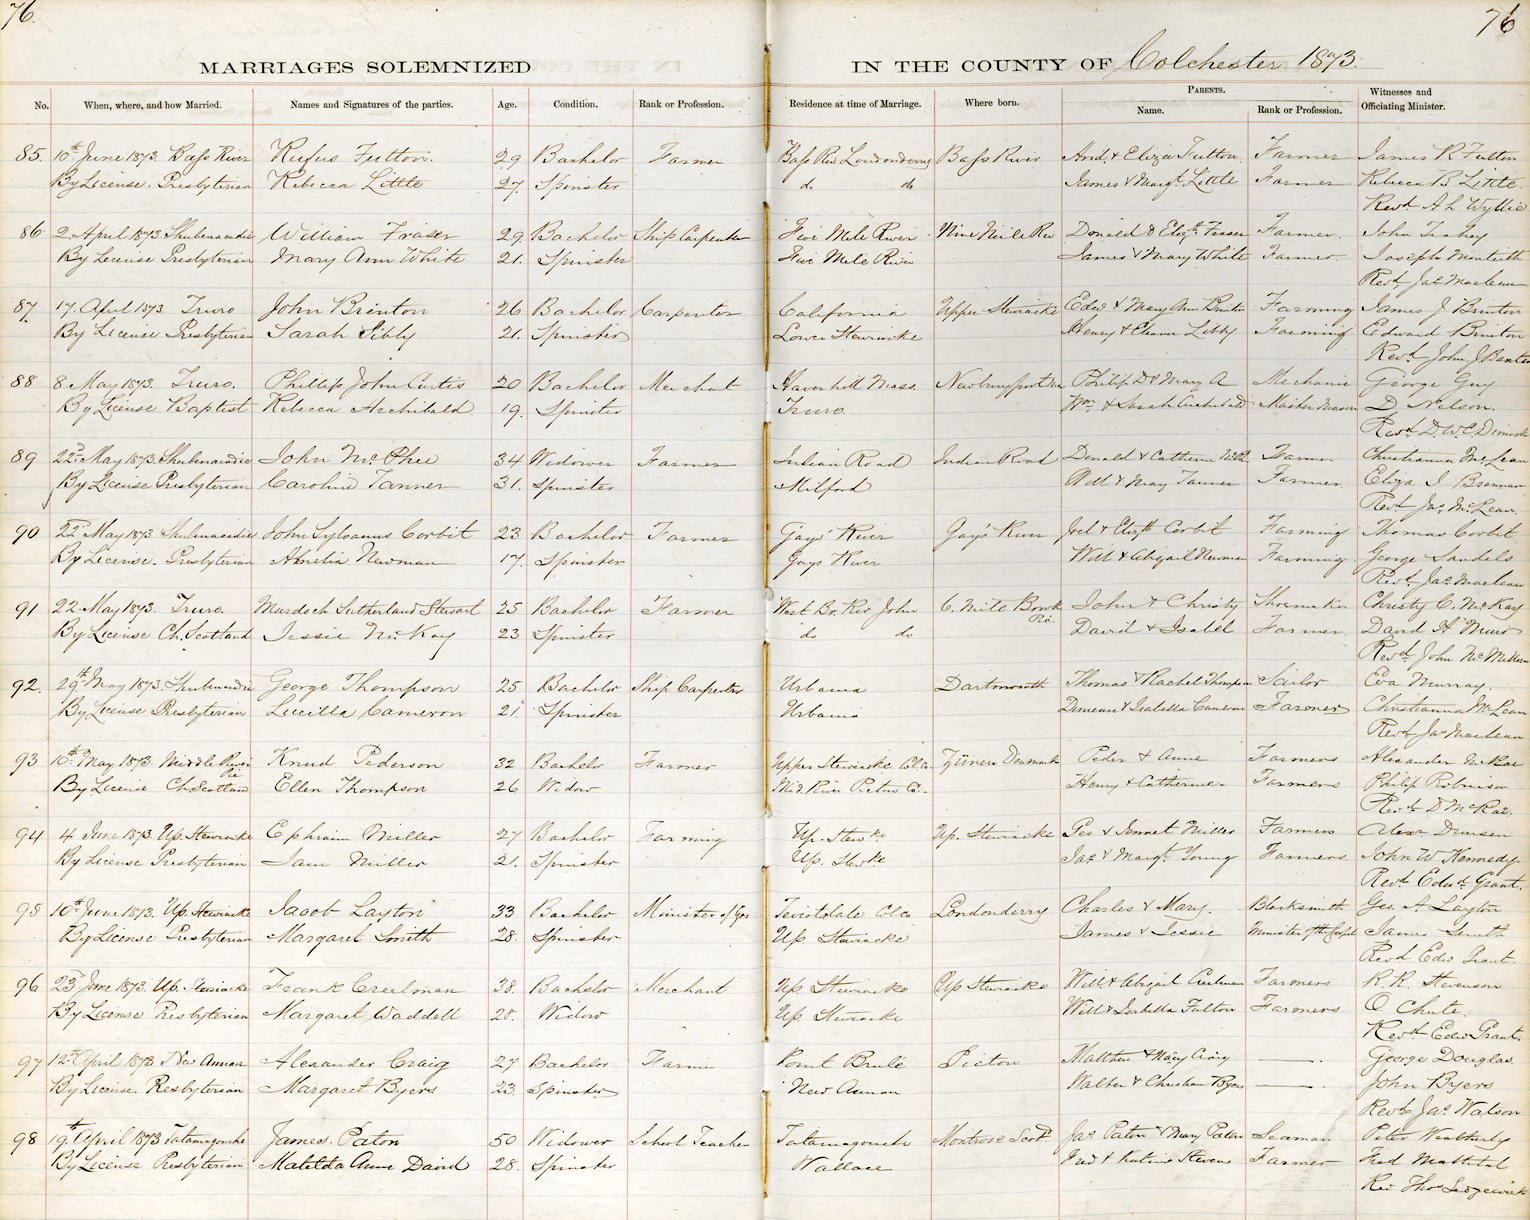 76.
76
MARRIAGES SOLEMNIZED IN THE COUNTY OF Colchester 1873.
No. When, where, and how Married. Names and Signatures of the parties. Age. Condition. Rank or Profession. Residence at time of Marriage. Where born. PARENTS. Name. Rank or Profession. Witnesses and Officiating Minister.
85 10th June 1873. Bass River Rufus Fulton. 29 Bachelor Farmer Bass Riv Londonderry Bass River And. & Eliza Fulton Farmer James R Fulton
By License. Presbyterian Rebecca Little 27. Spinster do do James & Margt. Little Farmer Rebecca B Little.
Revd. A L Wyllie
86 2 April 1873 Shubenacadie William Fraser 29. Bachelor Ship Carpenter Five Mile River Nine Mile Riv Donald & Elizh. Fraser Farmer. John
By License Presbyterian Mary Ann White 21. Spinster Five Mile River James & Mary White Farmer Joseph Monteith
Revd. Jas Maclean
87 17. April 1873. Truro John Brenton 26 Bachelor Carpenter California Upper Stewiacke Edwd & Mary Ann Brenton Farming James J Brenton
By License Presbyterian Sarah Libby 21. Spinster Lower Stewiacke Henry & Eleanor Libby Farming Edward Brenton
Revd. John J Baxter
88 8 May 1873. Truro. Phillip John Curtis 20 Bachelor Merchant Haverhill Mass. Newburyport Philip D & Mary A Mechanic George Guy
By License Baptist Rebecca Archibald 19. Spinster Truro. Wm. & Sarah Archibald Master Mason D Nelson.
Revd. D. W. C. Dimock
89 22nd May 1873. Shubenacadie John McPhee 34 Widower Farmer Indian Road Indian Road Donald & Catherine Farmer Christianna McLean
By License Presbyterian Caroline Tanner 31. Spinster Milford Will & Mary Tanner Farmer. Eliza J Brennan
Revd. Jas McLean.
90 22nd May 1873 Shubenacadie John Sylvanus Corbit 23 Bachelor Farmer Gays River Gay's River Joel & Elizth Corbit Farming Thomas Corbit
By License. Presbyterian Amelia Newman 17. Spinster Gays River Will & Abigail Newman Farming George Sandels
Revd. Jas Maclean
91 22 May 1873. Truro. Murdoch Sutherland Stewart 25 Bachelor Farmer West Br. Riv John 6. Mile Brook Pic. John & Christy Shoemaker Christy C. McKay
By License Ch. Scotland Jessie McKay 23 Spinster do do David & Isabel Farmer. David H Munro
Revd. John McMillan
92. 29th May 1873. Shubenacadie George Thompson 25 Bachelor Ship Carpenter Urbania Dartmouth Thomas & Rachel Thompson Sailor Eva Murray
By License Presbyterian Lucilla Cameron 21 Spinster Urbania Duncan & Isabella Cameron Farmer Christianna McLean
Revd. Jas Maclean
93 16th May 1873 Middle River Pic Knud Pederson 32 Bachelor Farmer Upper Stewiacke Col Co Denmark Peter & Anne Farmers Alexander McRae
By License Ch Scotland Ellen Thompson 26 Widow Mid. River Pictou Co. Henry & Catherine Farmers Philip Robinson
Revd. D McRae.
94 4 June 1873. Up. Stewiacke Ephraim Miller 27 Bachelor Farming Up. Stewke Up. Stewiacke Geo & Jennet Miller Farmers Alexr
By License Presbyterian Jane Miller 21. Spinster Up. Stwke Jas & Margt Young Farmers. John W Kennedy
Revd Edwd Grant.
95 10th June 1873. Up. Stewiacke Jacob Layton 33 Bachelor Minister of Gos Teviotdale Col Co Londonderry Charles & Mary. Blacksmith Geo. A Layton
By License Presbyterian Margaret Smith 28. Spinster Up. Stewiacke James & Jessie Minister of the Gospel James Smith
Revd Edw Grant.
96 23rd June 1873. Up. Stewiacke Frank Creelman 38. Bachelor Merchant Up Stewiacke Up Stewiacke Will & Abigail Creelman Farmers R. R. Stevenson
By License Presbyterian Margaret Waddell 28. Widow Up Stewiacke Will & Isabella Fulton Farmers O Chute.
Revd Edw Grant.
97 12th April 1873 New Annan Alexander Craig 27 Bachelor Farmer Point Brule Pictou Matthew & Nacy Craig George Douglas
By License. Presbyterian Margaret Byers 23. Spinster New Annan Walter & Christian Byers John Byers
Revd. Jas Watson
98 19th April 1873 Tatamagouche James. Paton 50 Widower School Teacher Tatamagouche Montrose Scotd. Jas Paton & Mary Paton Seaman Peter Weatherby
By License Presbyterian Matilda Anne David 28. Spinster Wallace Fred & Stevens Farmer Fred Mattatal
Rev Thos Sedgewick